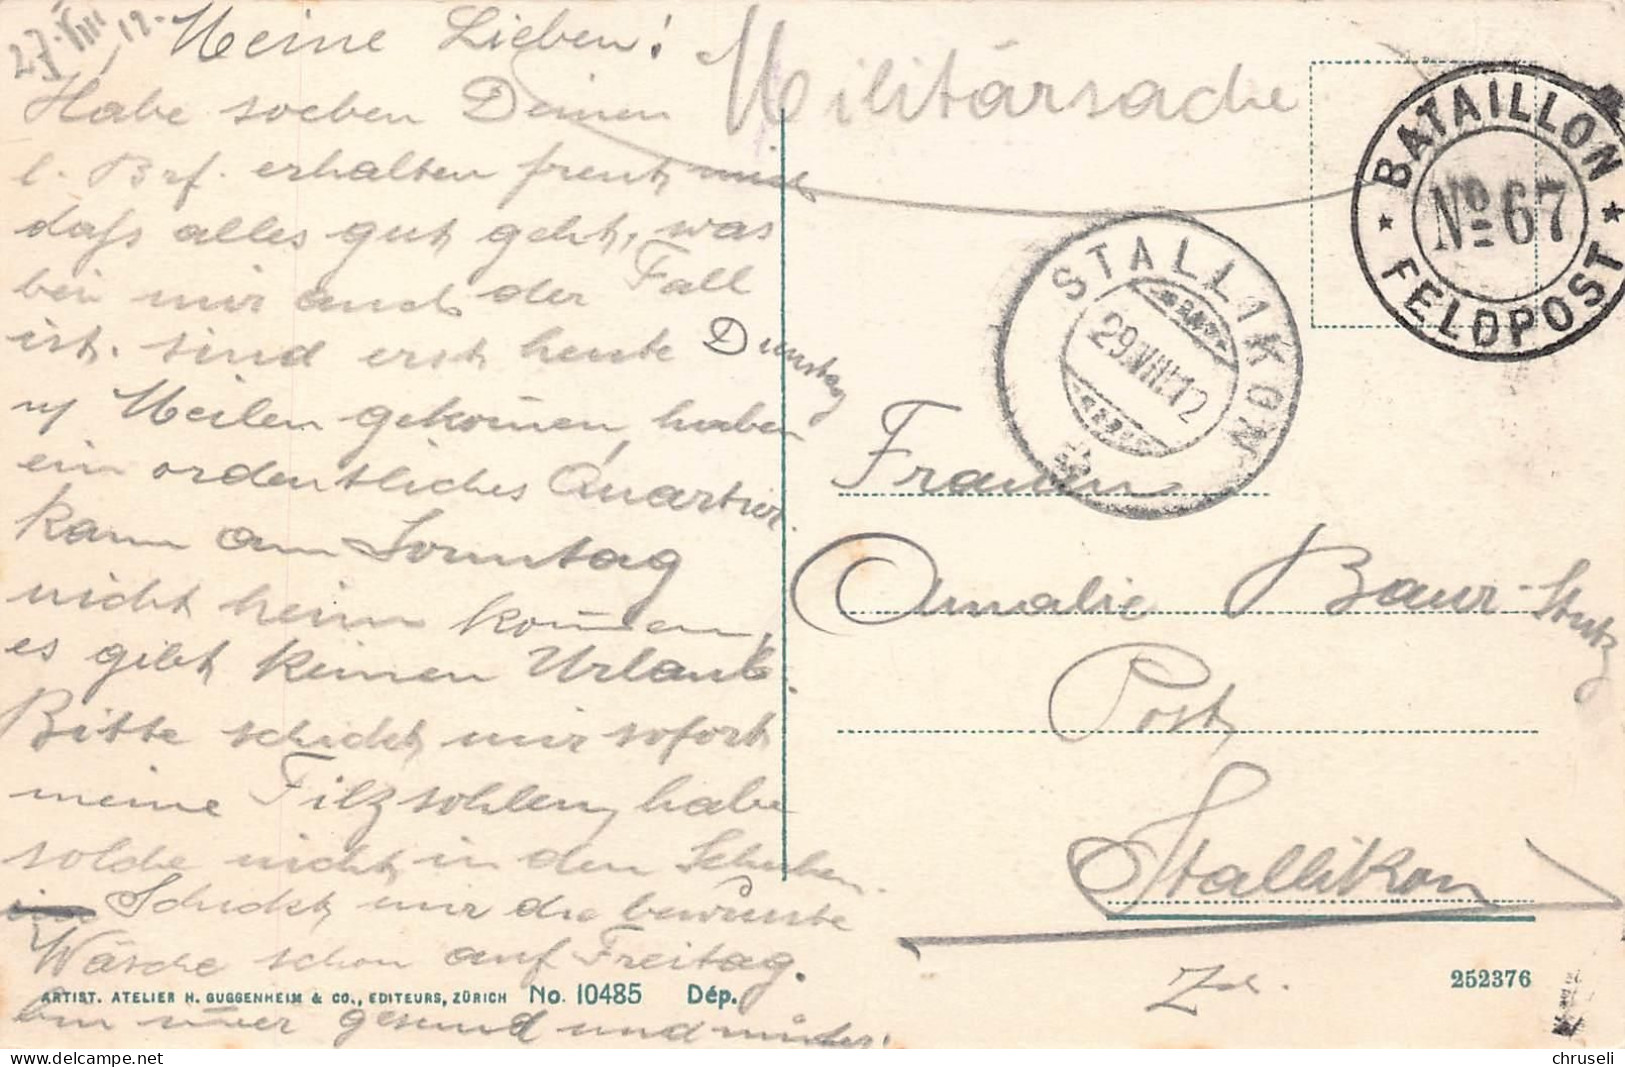 27. VIII. 12.
Meine Lieben!
Habe soeben Deinen
l. Brf. erhalten freut mich
daß alles gut geht, was
bei mir auch der Fall
ist. sind erst heute Dienstag
n/ Meilen gekom̅en, haben
ein ordentliches Quartier.
Kann am Sonntag
nicht heim kom̅en,
es gibt keinen Urlaub.
Bitte schickt mir sofort
meine Filzsohlen, habe
solche nicht in den Schuhen.
Schickt mir die bewußte
Wäsche schon auf Freitag.
bin gesund und munter.
ARTIST. ATELIER H. GUGGENHEIM & CO., EDITEURS, ZÜRICH No. 10485 Dép.
Militärsache
BATAILLON
No 67
FELDPOST
STALLIKON
29.VIII.12
Frauen
Amalie Baur-Stutz
Post
Stallikon
Zch.
252376
chruseli